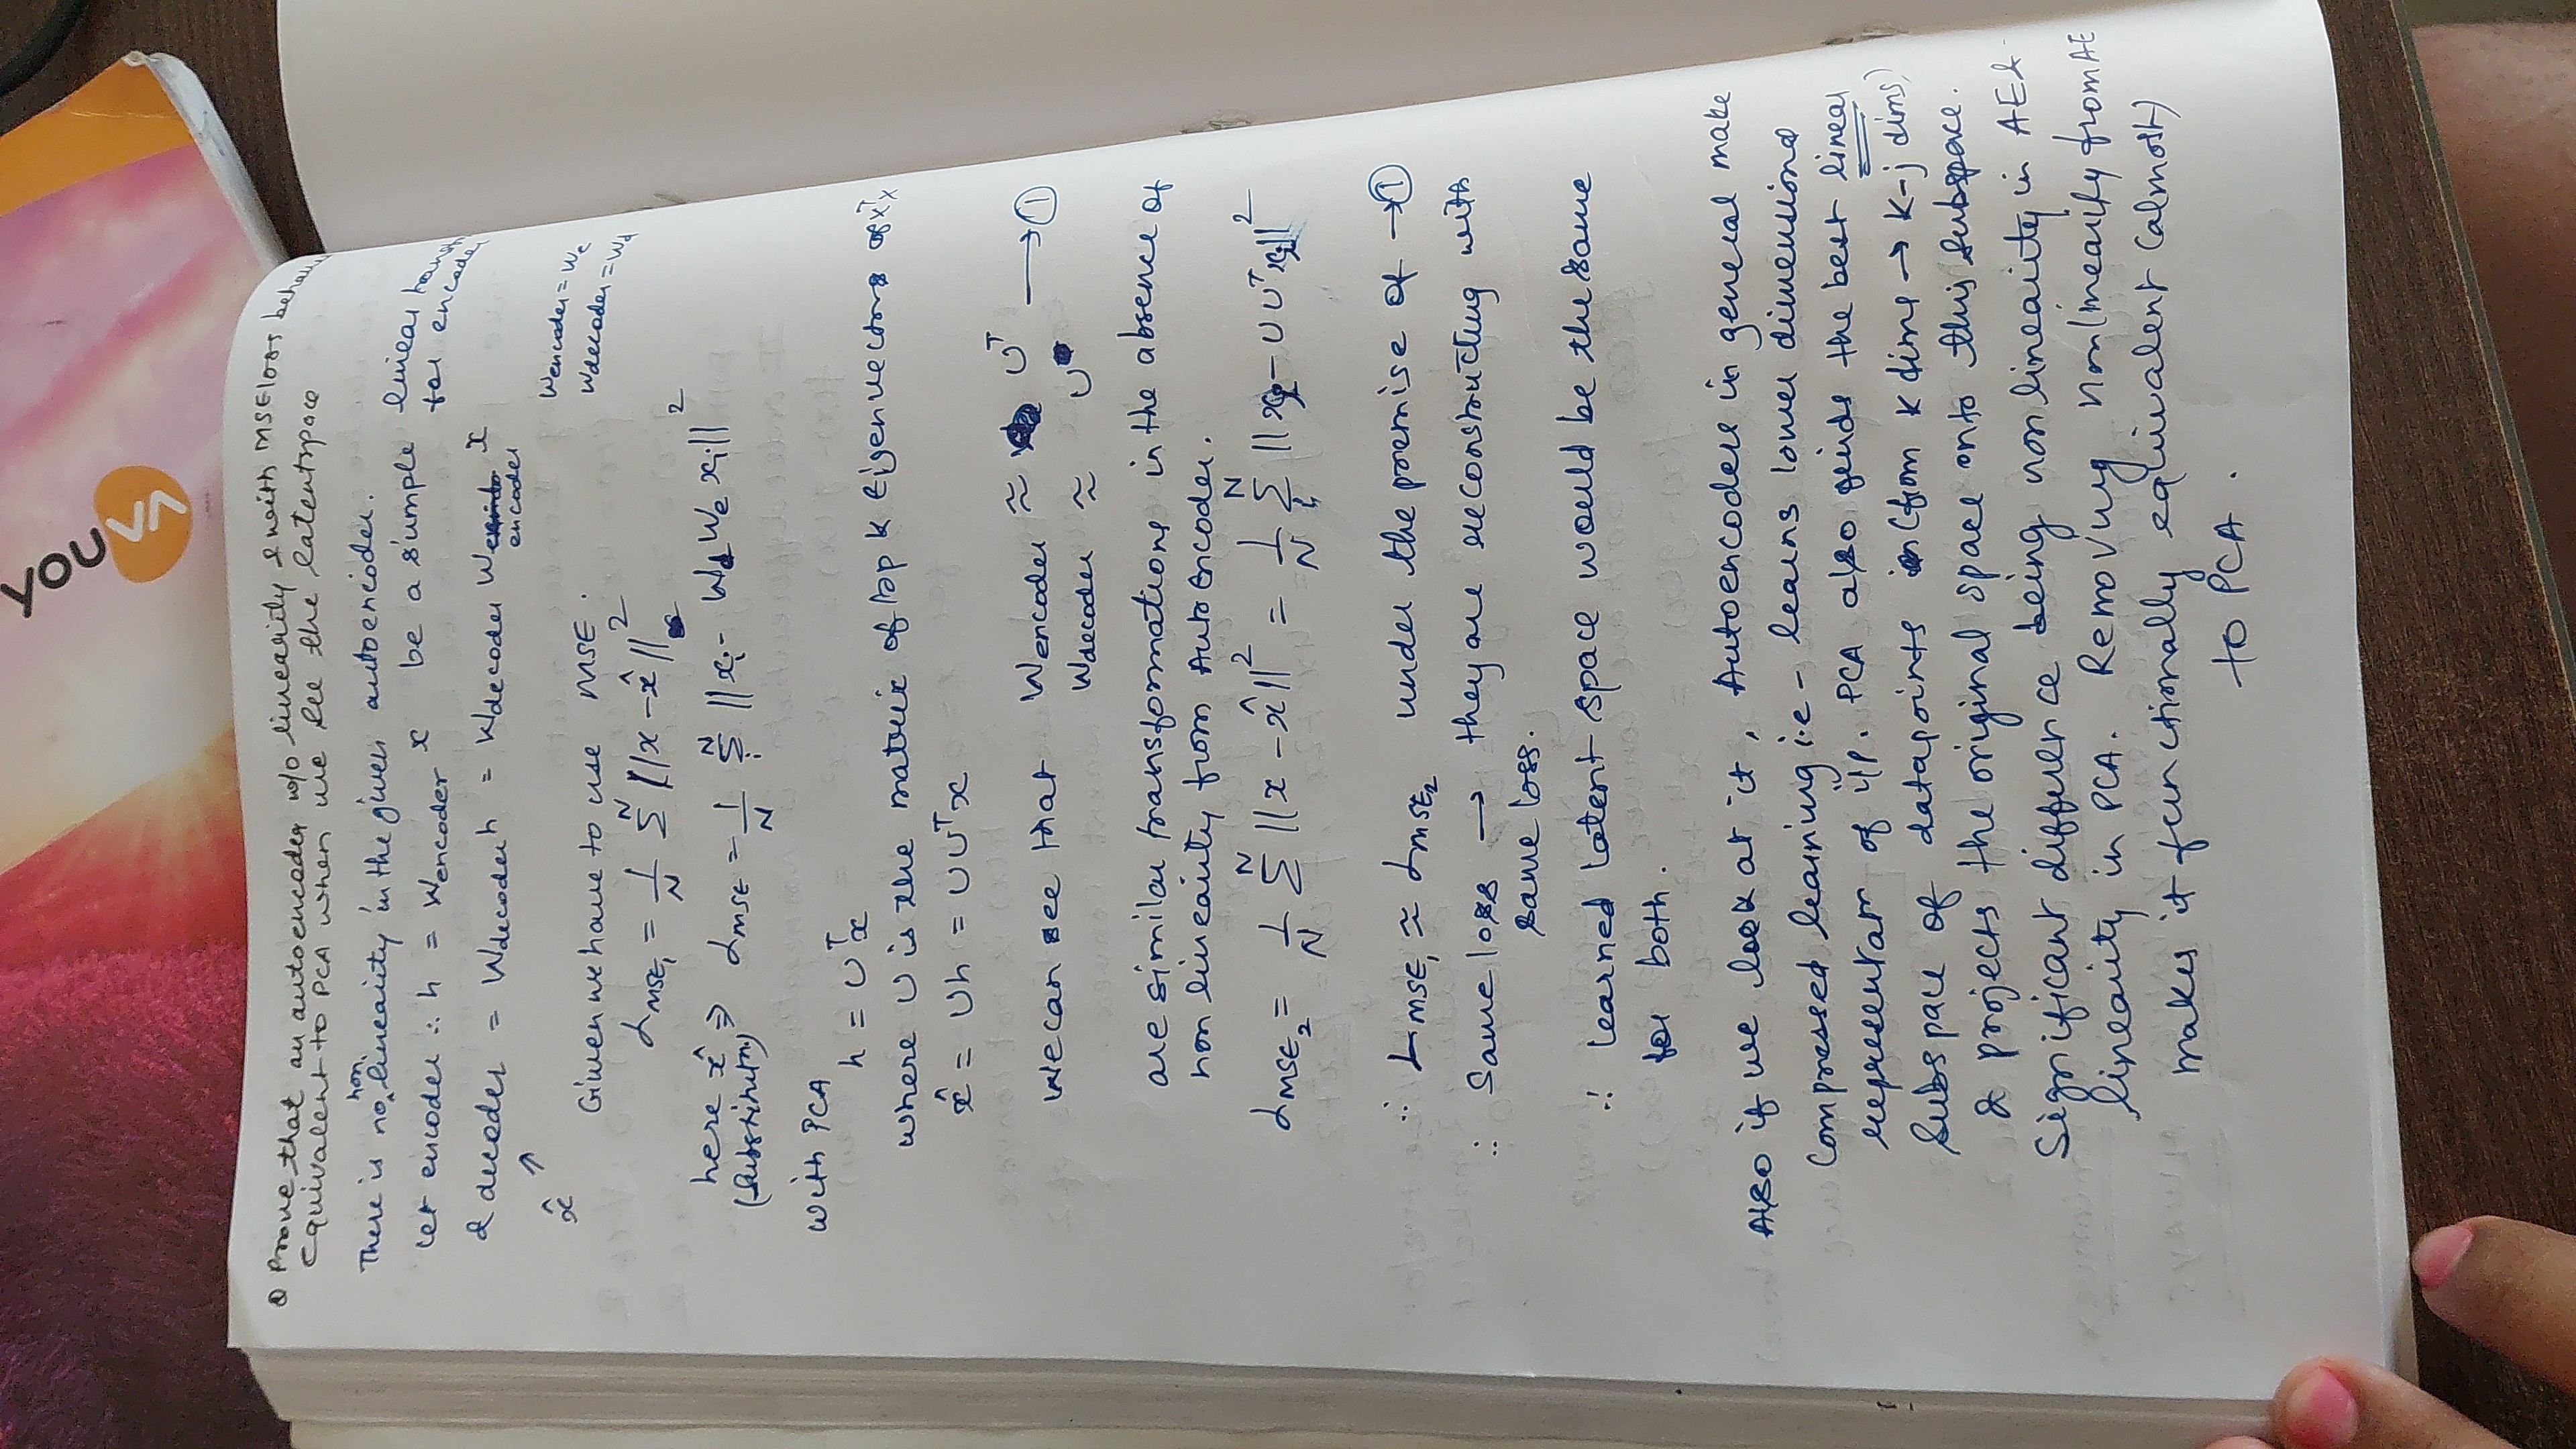 YOU
Q Prove that an autoencoder w/o linearity & with MSE loss behaves
equivalent to PCA when we see the latentspace
There is no non linearity in the given autoencoder.
Let encoder ∴ h = Wencoder x be a simple linear
for encoder
& decoder = Wdecoder h = Wdecoder Wencoder x
x̂ ↗
Wencoder = We
Wdecoder = Wd
Given we have to use MSE.
L MSE₁ = 1/N Σ^N ||x - x̂||²
here x̂ ⇒ L MSE = 1/N Σᵢ^N ||xᵢ - Wd We xᵢ||²
(Substitutn.)
With PCA
h = U^T x
where U is the matrix of top k Eigenvectors of X^T X
x̂ = Uh = UU^T x
We can see that Wencoder ≈ U^T → ①
Wdecoder ≈ U
are similar transformations in the absence of
non linearity from AutoEncoder.
L MSE₂ = 1/N Σ^N ||x - x̂||² = 1/N Σᵢ^N ||xᵢ - UU^T xᵢ||²
∵ L MSE₁ ≈ L MSE₂ under the premise of → ①
∴ Same loss → they are reconstructing with
same loss.
∴ learned latent space would be the same
for both.
Also if we look at it, Autoencoders in general make
compressed learning i.e - learns lower dimensional
representatn of i/p. PCA also finds the best linear
subspace of datapoints (from k dims → k-j dims)
& projects the original space onto this subspace.
Significant difference being non linearity in AE &
linearity in PCA. Removing Nonlinearity from AE
makes it functionally equivalent (almost)
to PCA.